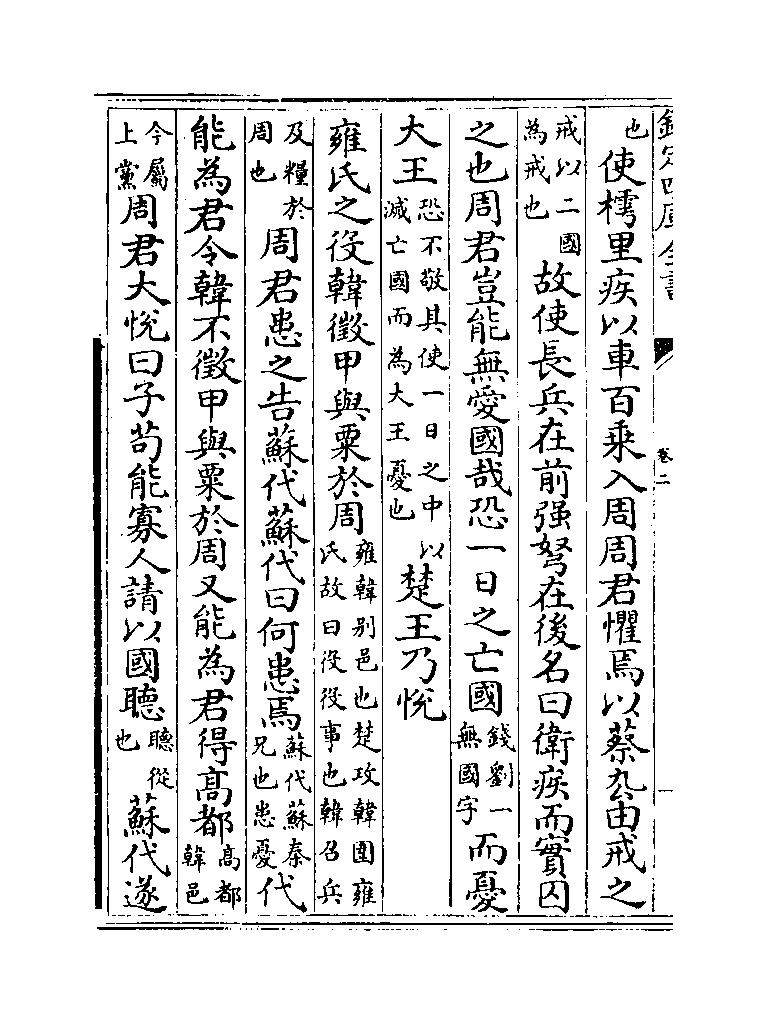 欽定四庫全書
卷二
也使樗里疾以車百乘入周周君懼焉以蔡厹由戒之
戒以二國為戒也故使長兵在前强弩在後名曰衛疾而實囚
之也周君豈能無愛國哉恐一日之亡國錢劉一無國字而憂
大王恐不敬其使一日之中以滅亡國而為大王憂也楚王乃悅
雍氏之役韓徵甲與粟於周雍韓别邑也楚攻韓圍雍氏故曰役役事也韓召兵
及糧於周也周君患之告蘇代蘇代曰何患焉蘇代蘇秦兄也患憂代
能為君令韓不徵甲與粟於周又能為君得高都高都韓邑
今屬上黨周君大悅曰子苟能寡人請以國聽聽從也蘇代遂